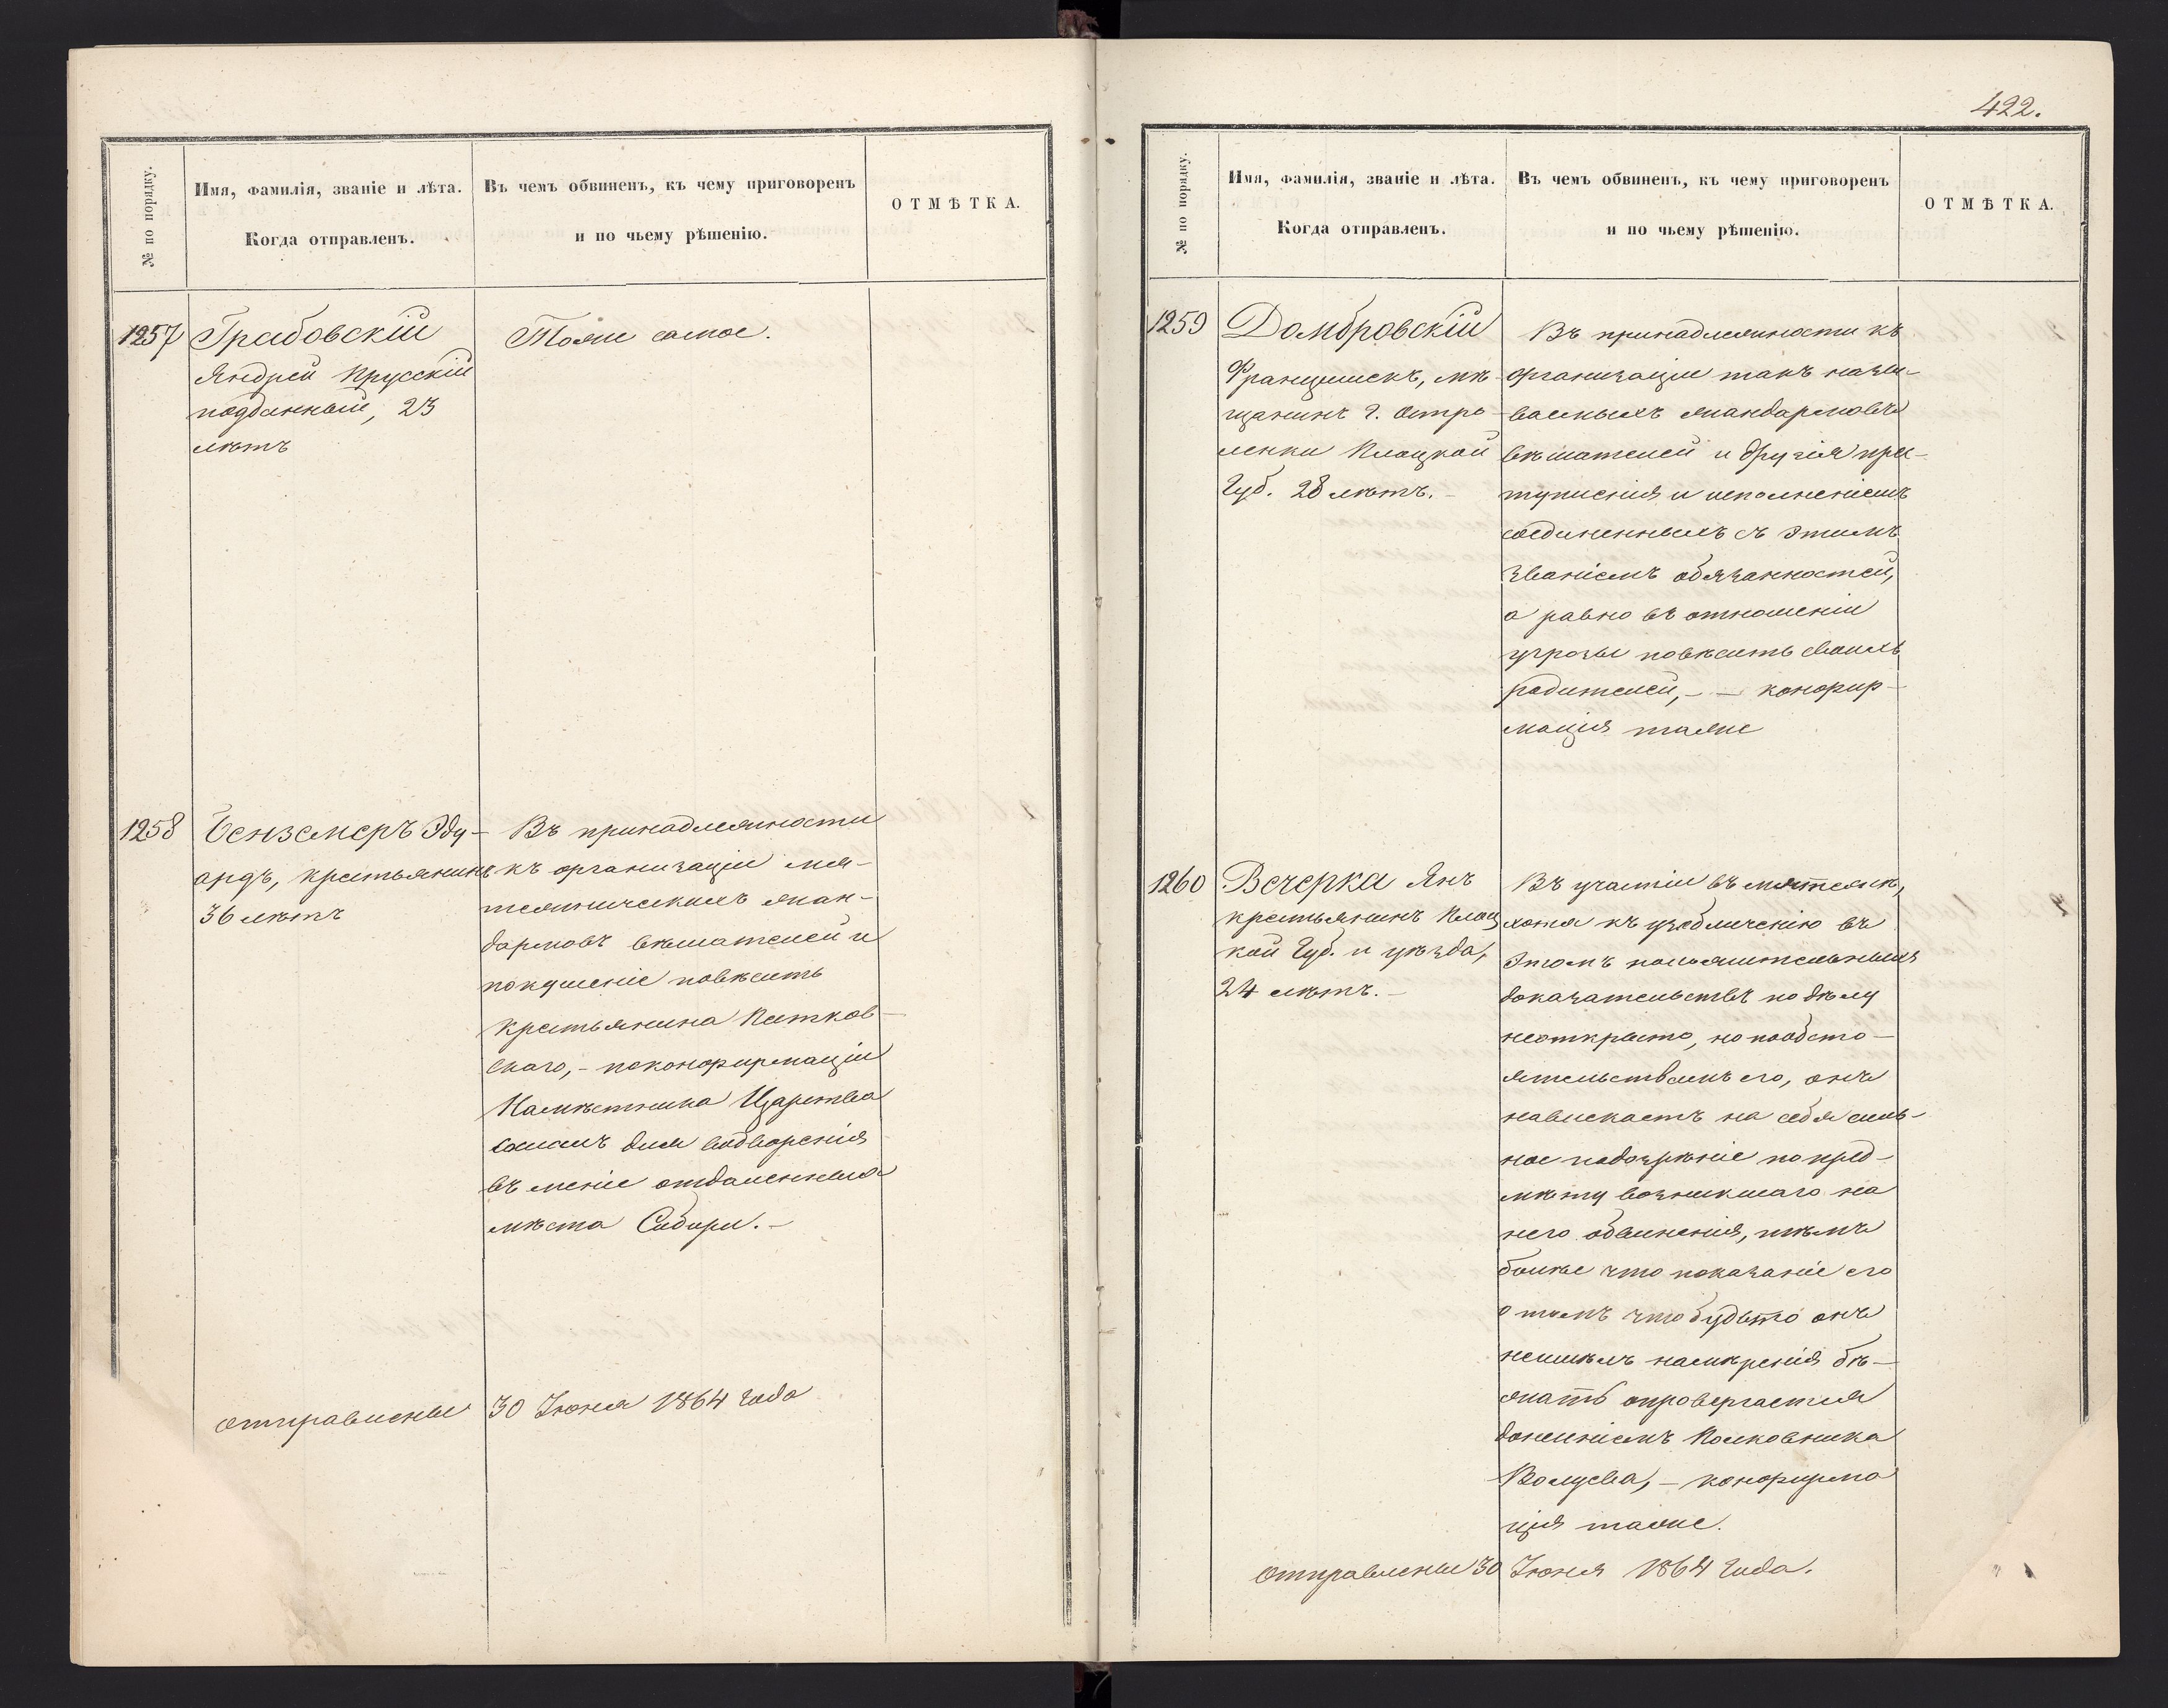 № по порядку.
Имя, фамилія, званіе и лѣта.
Когда отправленъ.
Въ чемъ обвиненъ, къ чему приговоренъ
и по чьему рѣшенію.
ОТМѢТКА.
1257
Грабовскій
Андрей Прусскій
подданный, 23
лѣтъ
Тоже самое.
1258
Бенземеръ Эду-
ардъ, крестьянинъ
36 лѣтъ
Въ принадлежности
къ организаціи мя-
тежническихъ жан-
дармовъ вѣшателей и
покушеніе повѣсить
крестьянина Петков-
скаго, - по конфирмаціи
Намѣстника Царства
сосланъ для водворенія
въ менѣе отдаленныя
мѣста Сибири. -
отправлены 30 Іюня 1864 года
422.
№ по порядку.
Имя, фамилія, званіе и лѣта.
Когда отправленъ.
Въ чемъ обвиненъ, къ чему приговоренъ
и по чьему рѣшенію.
ОТМѢТКА.
1259
Домбровскій
Францишекъ, мѣ-
щанинъ г. Остро-
ленки Плоцкой
Губ. 28 лѣтъ. -
Въ принадлежности къ
организаціи такъ назы-
ваемыхъ жандармовъ
вѣшателей и другія прес-
тупленія и исполненіемъ
соединенныхъ съ этимъ
званіемъ обязанностей,
а равно въ отношеніи
угрозы повѣсить своихъ
родителей, - - конфир-
мація таже
1260
Вечерка Янъ
крестьянинъ Плоц
кой Губ. и уѣзда,
24 лѣтъ. -
Въ участіи въ мятежѣ,
хотя къ изобличенію въ
этомъ положительныхъ
доказательствъ по дѣлу
не открыто, но по обсто-
ятельствамъ его, онъ
навлекаетъ на себя силь-
ное подозрѣніе по пред-
мѣту возникшаго на
него обвиненія, тѣмъ
болѣе что показаніе его
о томъ что будьто онъ
неимѣлъ намѣренія бѣ-
жать опровергается
донесеніемъ Полковника
Валуева, - конфирма
ція таже.
Отправлены 30 Іюня 1864 года.